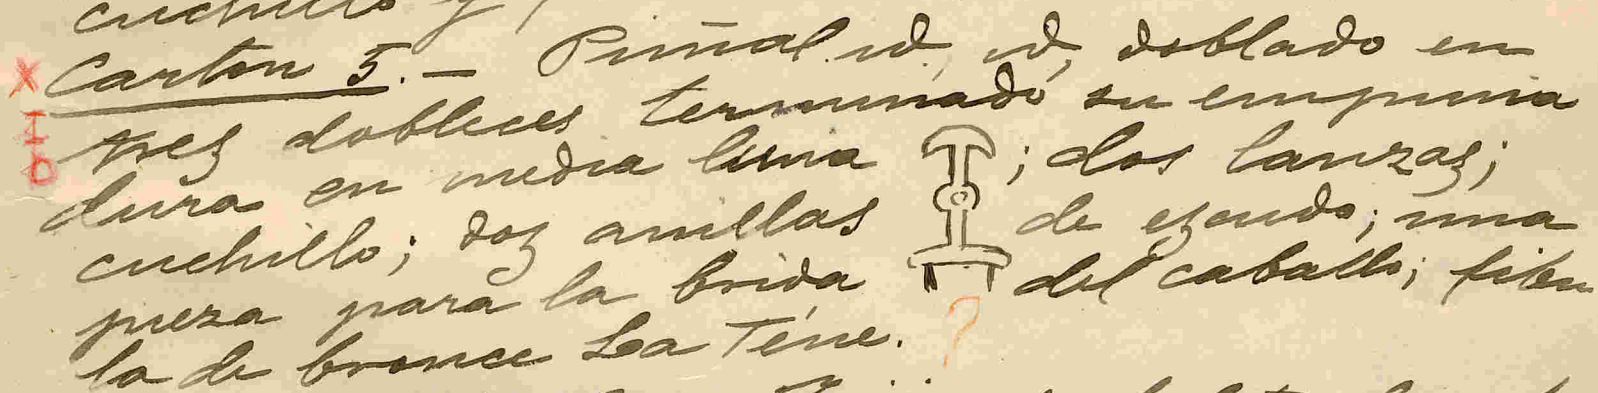 cuchillo y
X Carton 5. — Puñal id, id, doblado en
I tres dobleces terminado su empuña
D dura en media luna ; dos lanzas;
cuchillo; dos anillas de escudo; una
pieza para la brida del caballo; fibu
la de bronce La Téne. ?